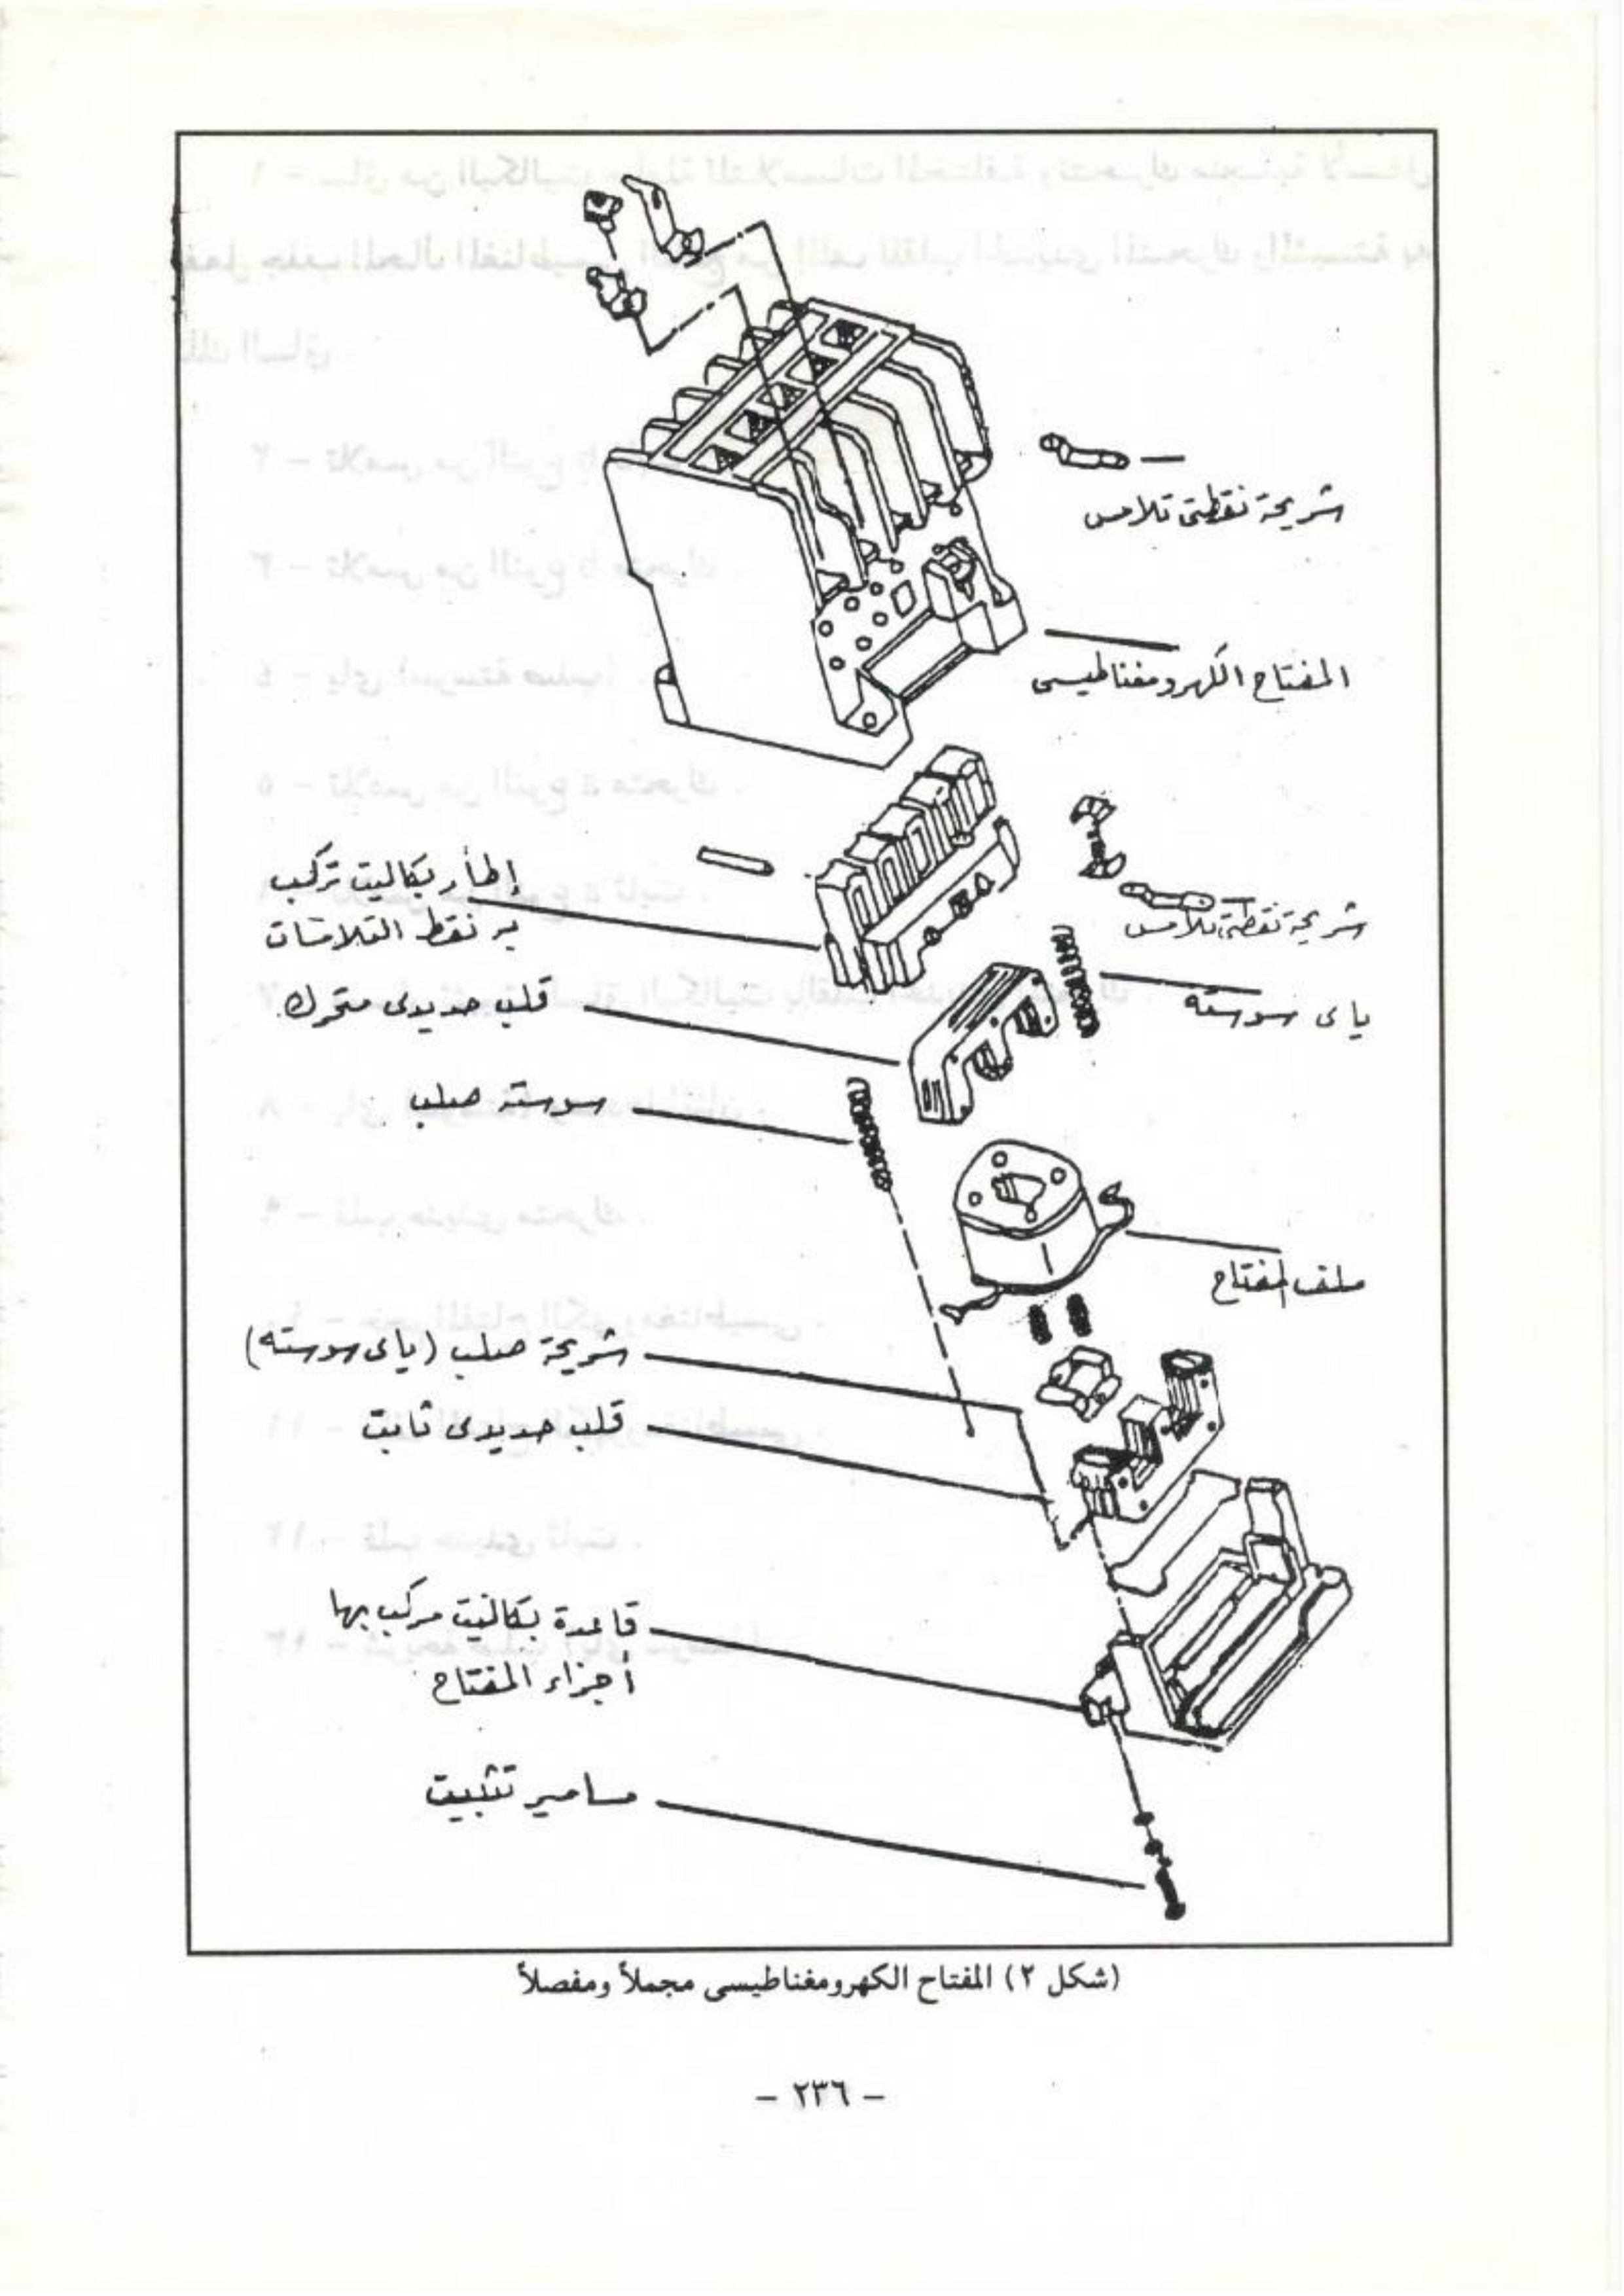 شريحة نقطتى تلامس
المفتاح الكهرومغناطيسى
إطار بكاليت تركب
به نقط التلامسات
شريحة نقطتى تلامس
قلب حديدى متحرك
ياى سوسته
سوسته صلب
ملف المفتاح
شريحة صلب (ياى سوسته)
قلب حديدى ثابت
قاعدة بكاليت مركب بها
أجزاء المفتاح
مسامير تثبيت
(شكل ٢) المفتاح الكهرومغناطيسى مجملاً ومفصلاً
– ٢٣٦ –